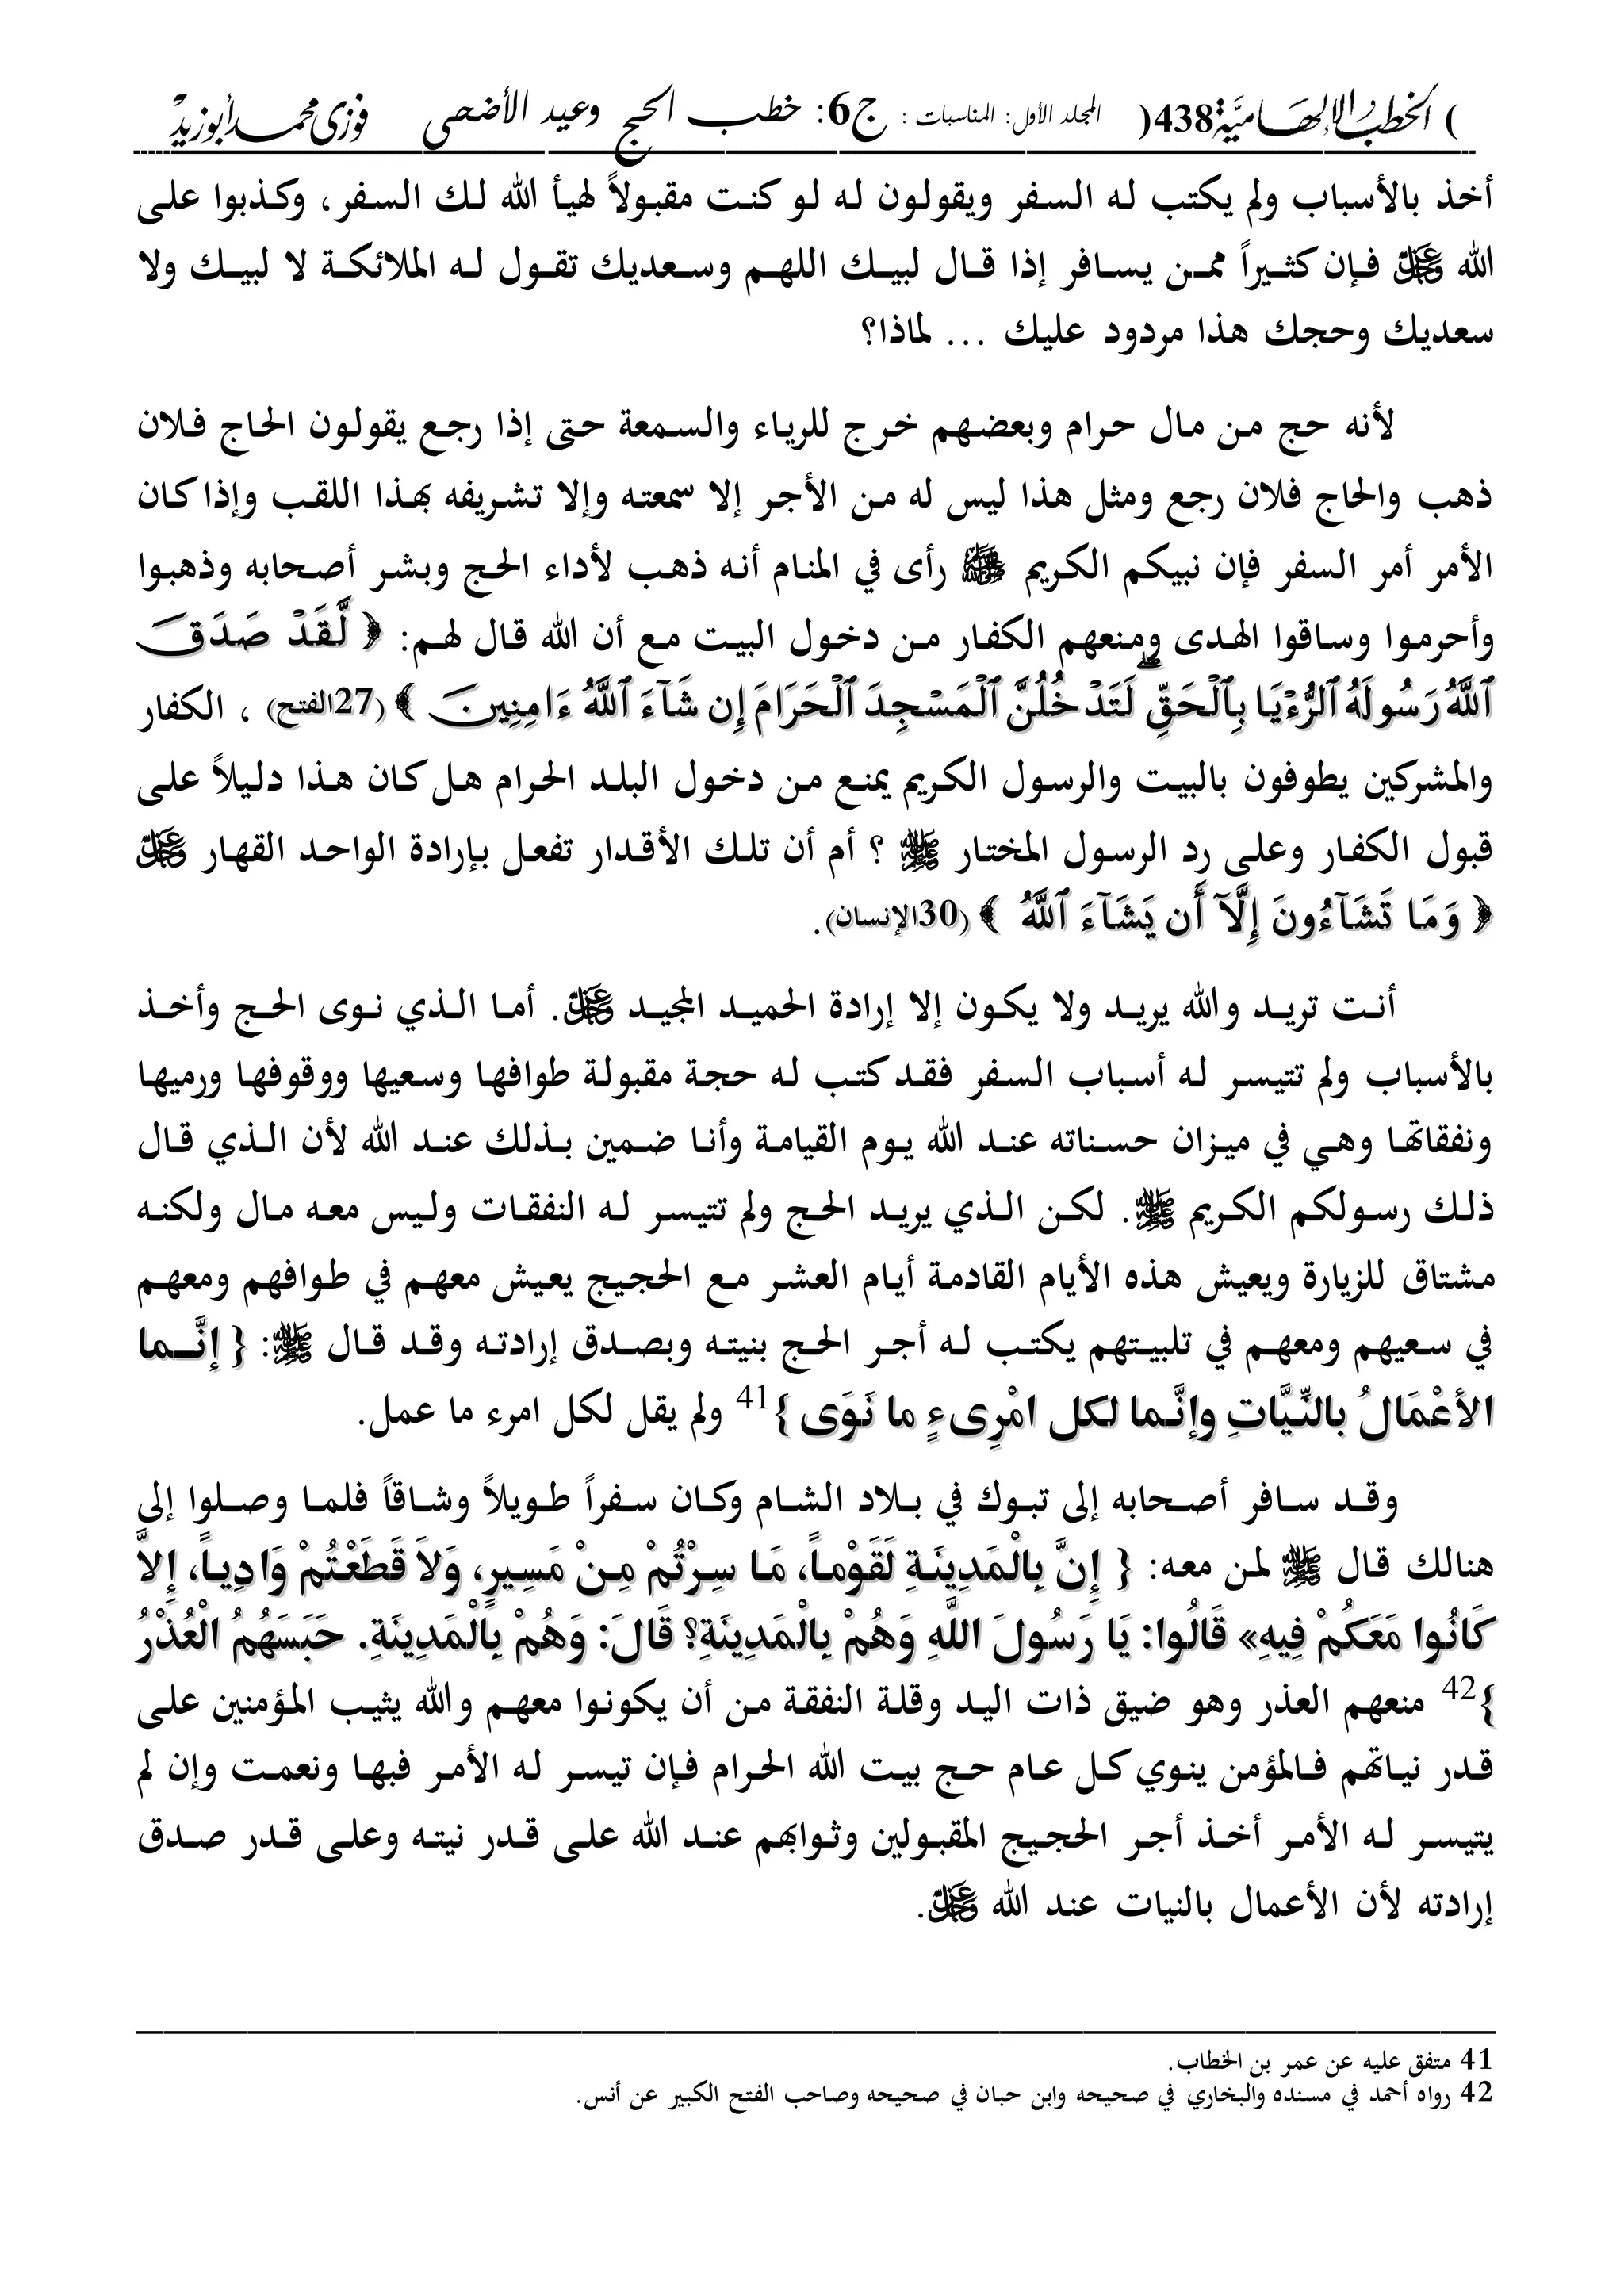 ( الخطب الإلهامية438( المجلد الأول: المناسبات : ج6: خطب الحج وعيد الأضحى فوزى محمد أبوزيد
أخذ بالأسباب ولم يكتب له السفر ويقولون له لو كنت مقبولاً لهيأ الله لك السفر، وكذبوا على
الله عز وجل فإن كثيراً ممن يسافر إذا قال لبيك اللهم وسعديك تقول له الملائكة لا لبيك ولا
سعديك وحجك هذا مردود عليك ... لماذا؟
لأنه حج من مال حرام وبعضهم خرج للرياء والسمعة حتى إذا رجع يقولون الحاج فلان
ذهب والحاج فلان رجع ومثل هذا ليس له من الأجر إلا سمعته وإلا تشريفه بهذا اللقب وإذا كان
الأمر أمر السفر فإن نبيكم الكريم ﷺ رأى في المنام أنه ذهب لأداء الحج وبشر أصحابه وذهبوا
وأحرموا وساقوا الهدى ومنعهم الكفار من دخول البيت مع أن الله قال لهم: ﴿ لَّقَدْ صَدَقَ
ٱللَّهُ رَسُولَهُ ٱلرُّءْيَا بِٱلْحَقِّ ۖ لَتَدْخُلُنَّ ٱلْمَسْجِدَ ٱلْحَرَامَ إِن شَآءَ ٱللَّهُ ءَامِنِينَ ﴾ (27الفتح) ، الكفار
والمشركين يطوفون بالبيت والرسول الكريم يمنع من دخول البلد الحرام هل كان هذا دليلاً على
قبول الكفار وعلى رد الرسول المختار ﷺ ؟ أم أن تلك الأقدار تفعل بإرادة الواحد القهار عز وجل
﴿ وَمَا تَشَآءُونَ إِلَّآ أَن يَشَآءَ ٱللَّهُ ﴾ (30الإنسان).
أنت تريد والله يريد ولا يكون إلا إرادة الحميد المجيد عز وجل. أما الذي نوى الحج وأخذ
بالأسباب ولم تتيسر له أسباب السفر فقد كتب له حجة مقبولة طوافها وسعيها ووقوفها ورميها
ونفقاتها وهي في ميزان حسناته عند الله يوم القيامة وأنا ضمين بذلك عند الله لأن الذي قال
ذلك رسولكم الكريم ﷺ. لكن الذي يريد الحج ولم تتيسر له النفقات وليس معه مال ولكنه
مشتاق للزيارة ويعيش هذه الأيام القادمة أيام العشر مع الحجيج يعيش معهم في طوافهم ومعهم
في سعيهم ومعهم في تلبيتهم يكتب له أجر الحج بنيته وبصدق إرادته وقد قال ﷺ: { إنَّما
الأعْمَالُ بالنِّيَّاتِ وإنَّما لكل امْرِىءٍ ما نَوَى }41 ولم يقل لكل امرء ما عمل.
وقد سافر أصحابه إلى تبوك في بلاد الشام وكان سفراً طويلاً وشاقاً فلما وصلوا إلى
هنالك قال ﷺ لمن معه: { إِنَّ بِالْمَدِينَةِ لَقَوْماً، مَا سِرْتُمْ مِنْ مَسِيرٍ، وَلاَ قَطَعْتُمْ وَادِياً، إِلاَّ
كَانُوا مَعَكُمْ فِيهِ» قَالُوا: يَا رَسُولَ اللَّهِ وَهُمْ بِالْمَدِينَةِ؟ قَالَ: وَهُمْ بِالْمَدِينَةِ. حَبَسَهُمُ الْعُذْرُ
}42 منعهم العذر وهو ضيق ذات اليد وقلة النفقة من أن يكونوا معهم والله يثيب المؤمنين على
قدر نياتهم فالمؤمن ينوي كل عام حج بيت الله الحرام فإن تيسر له الأمر فبها ونعمت وإن لم
يتيسر له الأمر أخذ أجر الحجيج المقبولين وثوابهم عند الله على قدر نيته وعلى قدر صدق
إرادته لأن الأعمال بالنيات عند الله عز وجل.
41 متفق عليه عن عمر بن الخطاب.
42 رواه أحمد في مسنده والبخاري في صحيحه وابن حبان في صحيحه وصاحب الفتح الكبير عن أنس.